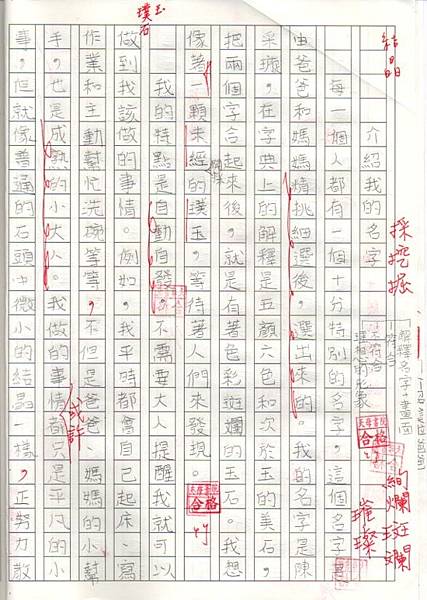 介紹我的名字
每一個人都有一個十分特別的名字。這個名字是
由爸爸和媽媽精挑細選後,選出來的。我的名字是陳
采璇,在字典上的解釋是五顏六色和次於玉的美石,
把兩個字合起來後,就是有著色彩斑斕的玉石。我想
像著一顆未經的璞玉,等待著人們來發現。
我的特點是自動自發,不需要大人提醒我就可以
做到我該做的事情。例如,我平時都會自己起床、寫
作業和主動幫忙洗碗等等,不但是爸爸、媽媽的小幫
手,也是成熟的小大人。我做的事情都只是平凡的小
事,但就像普通的石頭中微小的結晶一樣,正努力散
結晶
採挖掘
解釋名字+畫面
合格
合格
絢爛斑斕
璀璨
璞玉
石